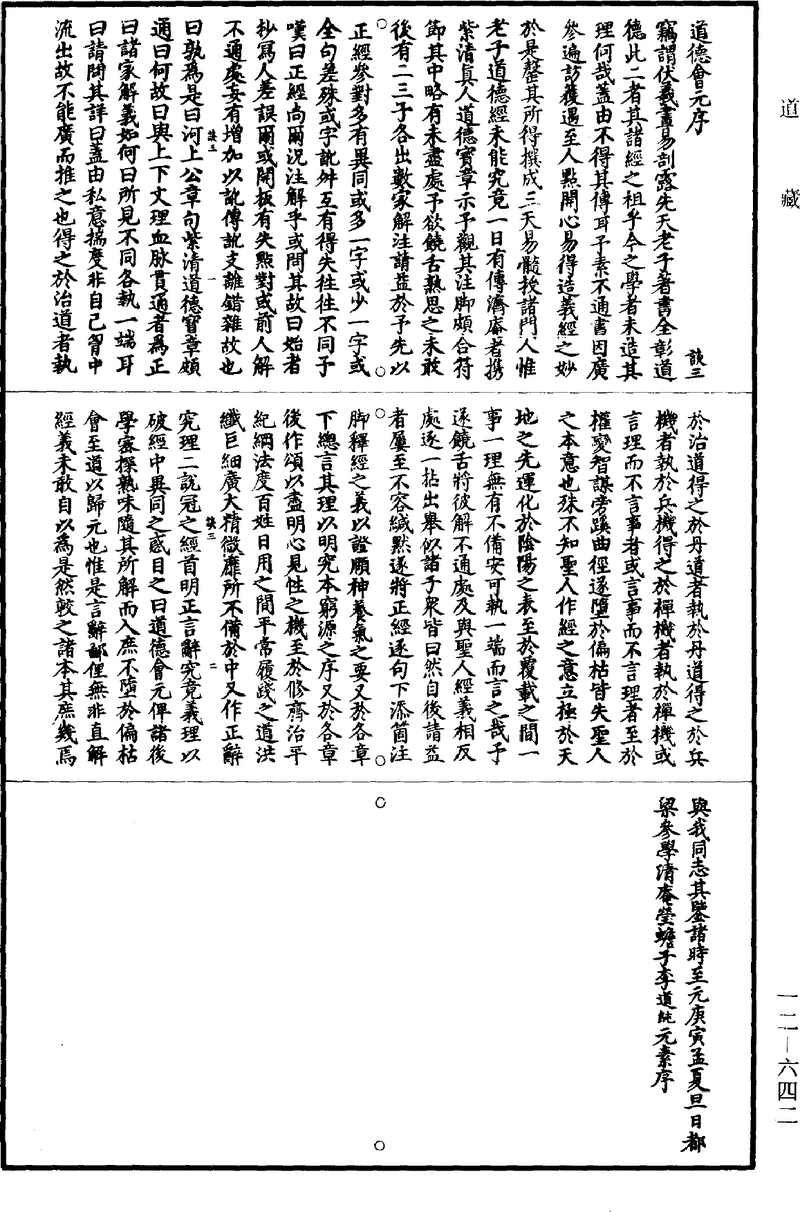 道藏
道德會元序
談三
竊謂伏羲畫易剖露先天老子著書全彰道
德此二者其諸經之祖乎今之學者未造其
理何哉蓋由不得其傳耳予素不通書因廣
參遍訪獲遇至人點開心易得造義經之妙
於是罄其所得撰成三天易髓授諸門人惟
老子道德經未能究竟一日有傳濟庵者攜
紫清真人道德寶章示予觀其注脚頗合符
節其中略有未盡處予欲饒舌熟思之未敢
後有二三子各出數家解注請益於予先以
正經參對多有異同或多一字或少一字或
全句差殊或字訛舛互有得失往往不同予
嘆曰正經尚爾況注解乎或問其故曰始者
抄寫人差誤爾或開板有失點對或前人解
不通處妄有增加以訛傳訛支離錯雜故也
談三 一
曰孰為是曰河上公章句紫清道德寶章頗
通曰何故曰與上下文理血脉貫通者為正
曰諸家解義如何曰所見不同各執一端耳
曰請問其詳曰蓋由私意揣度非自己胷中
流出故不能廣而推之也得之於治道者執
於治道得之於丹道者執於丹道得之於兵
機者執於兵機得之於禪機者執於禪機或
言理而不言事者或言事而不言理者至於
權變智謀旁蹊曲徑遂墮於偏枯皆失聖人
之本意也殊不知聖人作經之意立極於天
地之先運化於陰陽之表至於覆載之間一
事一理無有不備安可執一端而言之哉予
遂饒舌將彼解不通處及與聖人經義相反
處逐一拈出舉似諸子衆皆曰然自後請益
者屢至不容緘默遂將正經逐句下添箇注
脚釋經之義以證頤神養氣之要又於各章
下總言其理以明究本窮源之序又於各章
後作頌以盡明心見性之機至於修齊治平
紀綱法度百姓日用之間平常履踐之道洪
纖巨細廣大精微靡所不備於中又作正辭
談三 二
究理二說冠之經首明正言辭究竟義理以
破經中異同之惑目之曰道德會元俾諸後
學密探熟味隨其所解而入庶不墮於偏枯
會至道以歸元也惟是言辭鄙俚無非直解
經義未敢自以為是然較之諸本其庶幾焉
與我同志其鑒諸時至元庚寅孟夏旦日都
梁參學清庵瑩蟾子李道純元素序
一二－六四二